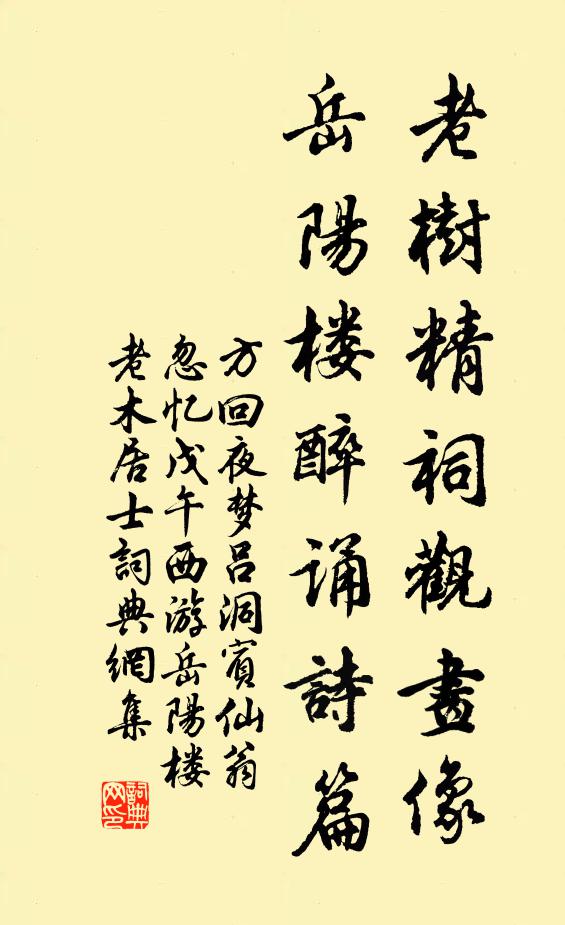 老樹精祠觀畫像
岳陽楼醉诵詩篇
方回夜梦吕洞賓仙翁
忽忆戊午西游岳陽楼
老木居士詞典網集
詞典
网印